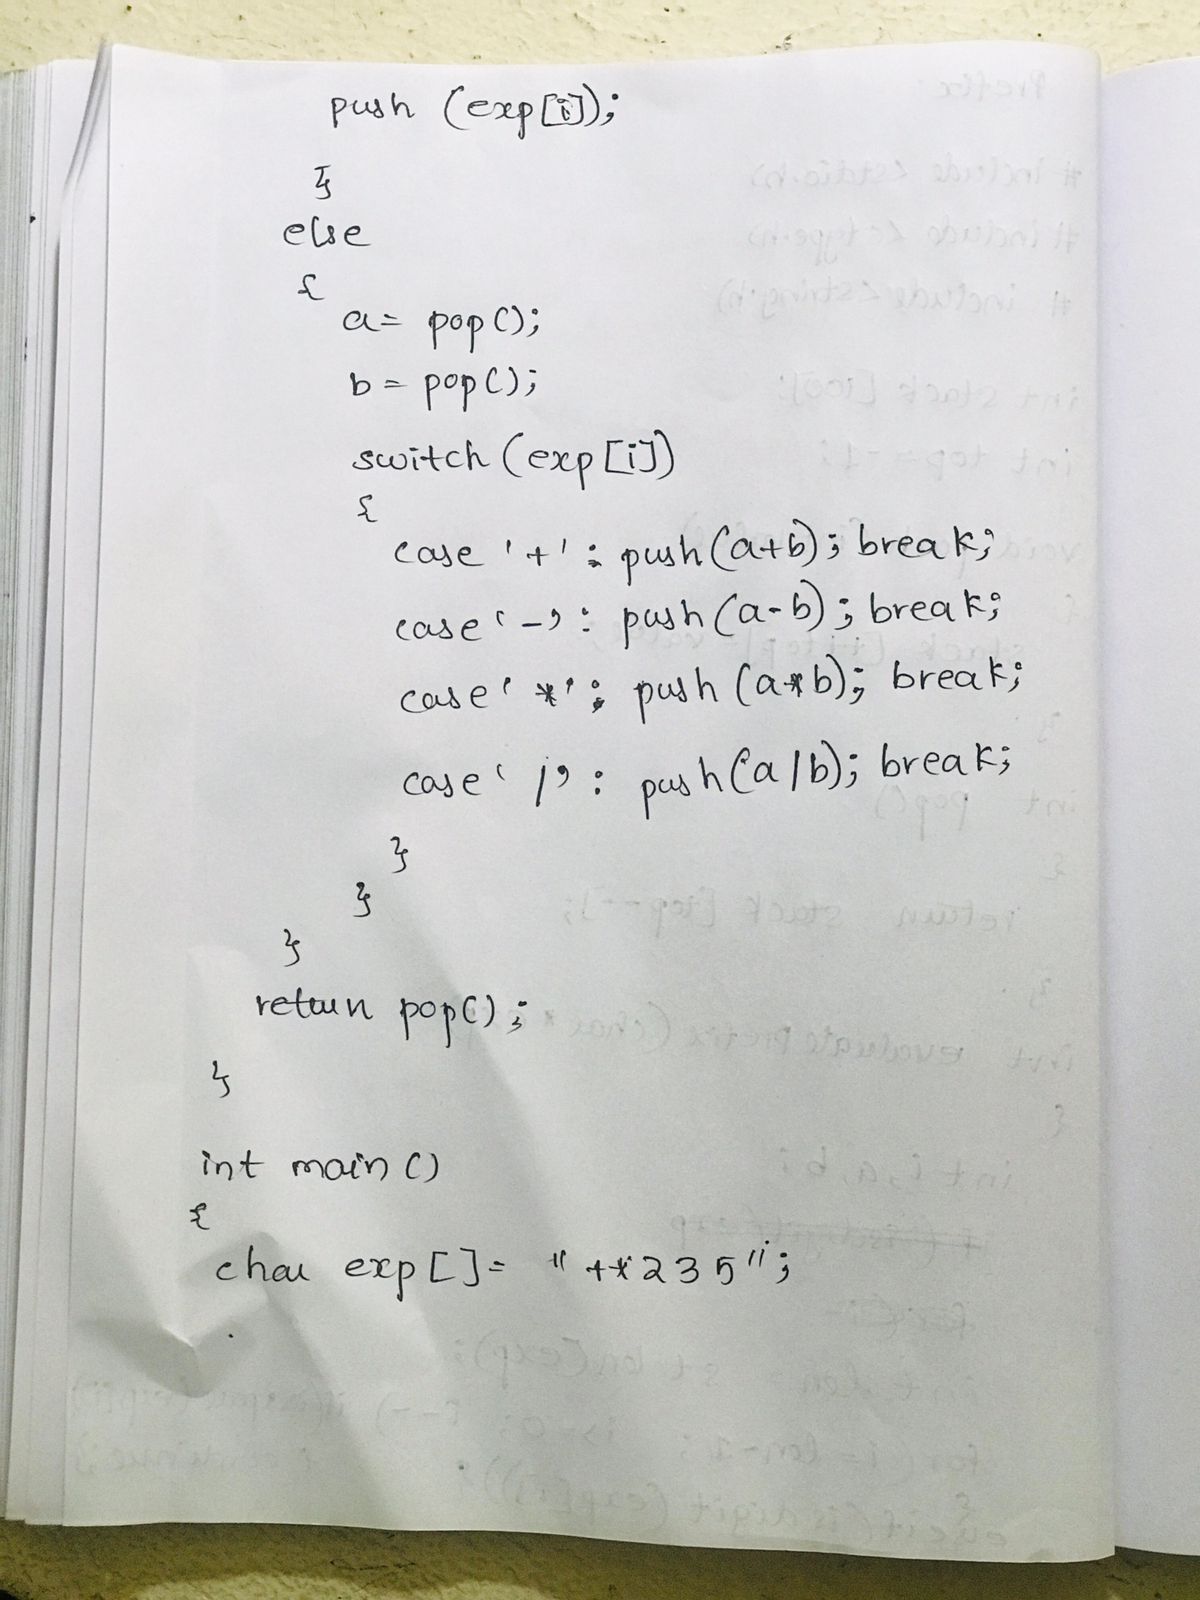 push (exp[i]);
}
else
{
a = pop();
b = pop();
switch (exp[i])
{
case '+' : push(a+b); break;
case '-' : push(a-b); break;
case '*' : push (a*b); break;
case '/' : push(a/b); break;
}
}
}
return pop();
}
int main()
{
char exp[] = "+*235";